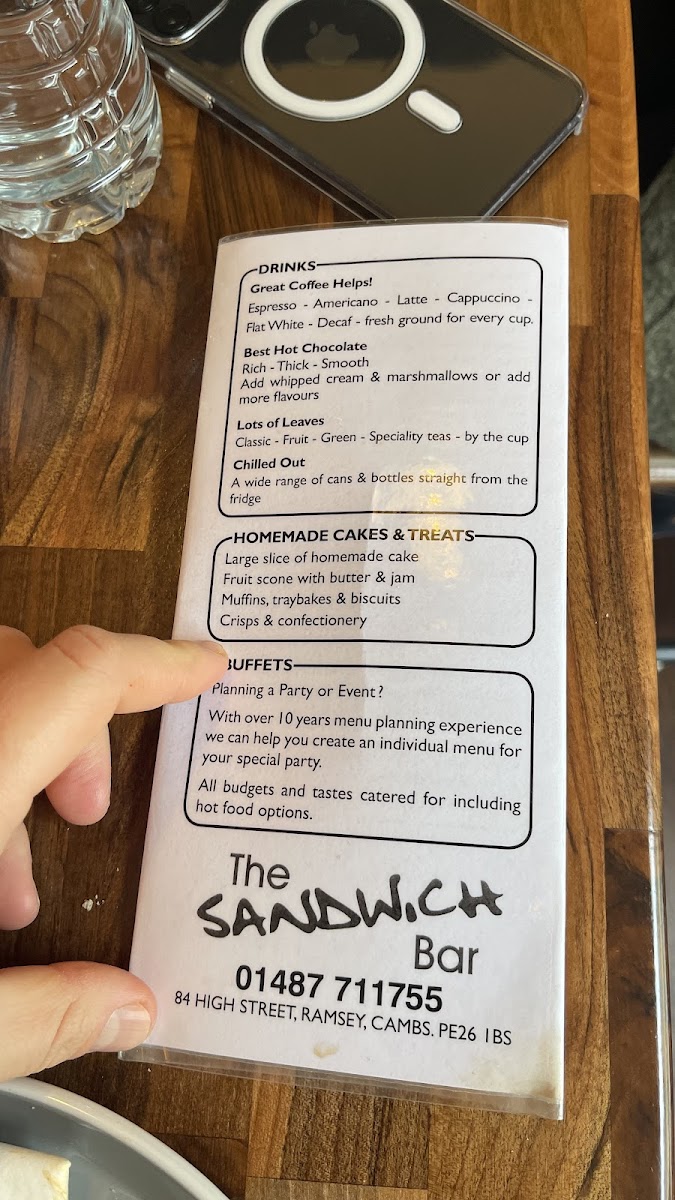 DRINKS
Great Coffee Helps!
Espresso - Americano - Latte - Cappuccino -
Flat White - Decaf - fresh ground for every cup.
Best Hot Chocolate
Rich - Thick - Smooth
Add whipped cream & marshmallows or add
more flavours
Lots of Leaves
Classic - Fruit - Green - Speciality teas - by the cup
Chilled Out
A wide range of cans & bottles straight from the
fridge
HOMEMADE CAKES & TREATS
Large slice of homemade cake
Fruit scone with butter & jam
Muffins, traybakes & biscuits
Crisps & confectionery
BUFFETS
Planning a Party or Event?
With over 10 years menu planning experience
we can help you create an individual menu for
your special party.
All budgets and tastes catered for including
hot food options.
The
SANDWiCH
Bar
01487 711755
84 HIGH STREET, RAMSEY, CAMBS. PE26 1BS